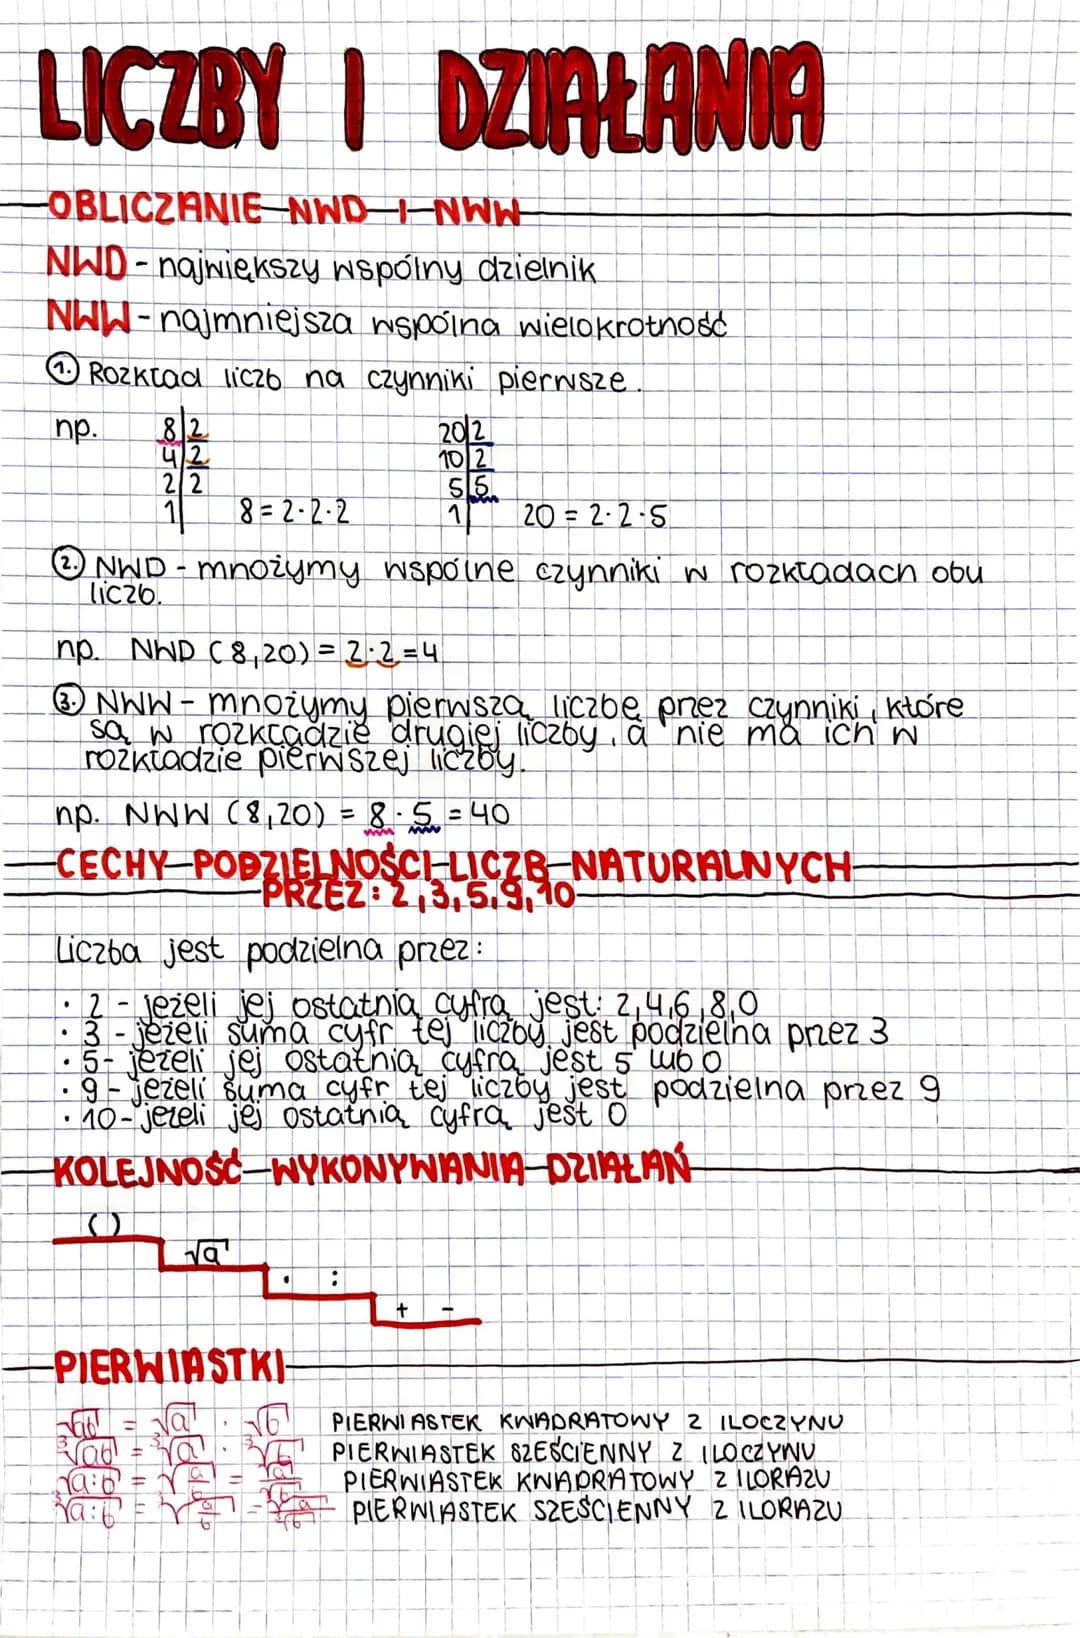 LICZBY I DZIAŁANIA
OBLICZANIE NWD I NWW
NWD - największy wspólny dzielnik
NWW - najmniejsza wspólna wielokrotność
1. Rozkład liczb na czynniki pierwsze.
np. 8|2 20|2
4|2 10|2
2|2 5|5
1| 8 = 2·2·2 1| 20 = 2·2·5
2. NWD - mnożymy wspólne czynniki w rozkładach obu
liczb.
np. NWD (8,20) = 2·2 = 4
3. NWW - mnożymy pierwszą liczbę przez czynniki, które
są w rozkładzie drugiej liczby, a nie ma ich w
rozkładzie pierwszej liczby.
np. NWW (8,20) = 8 · 5 = 40
CECHY PODZIELNOŚCI LICZB NATURALNYCH
PRZEZ: 2, 3, 5, 9, 10
Liczba jest podzielna przez:
· 2 - jeżeli jej ostatnią cyfrą jest: 2,4,6,8,0
· 3 - jeżeli suma cyfr tej liczby jest podzielna przez 3
· 5 - jeżeli jej ostatnią cyfrą jest 5 lub 0
· 9 - jeżeli suma cyfr tej liczby jest podzielna przez 9
· 10 - jeżeli jej ostatnią cyfrą jest 0
KOLEJNOŚĆ WYKONYWANIA DZIAŁAŃ
( )
√a
· :
+ -
PIERWIASTKI
√ab = √a · √b PIERWIASTEK KWADRATOWY Z ILOCZYNU
∛ab = ∛a · ∛b PIERWIASTEK SZEŚCIENNY Z ILOCZYNU
√a:b = √a/b = √a/√b PIERWIASTEK KWADRATOWY Z ILORAZU
∛a:b = ∛a/b = ∛a/∛b PIERWIASTEK SZEŚCIENNY Z ILORAZU